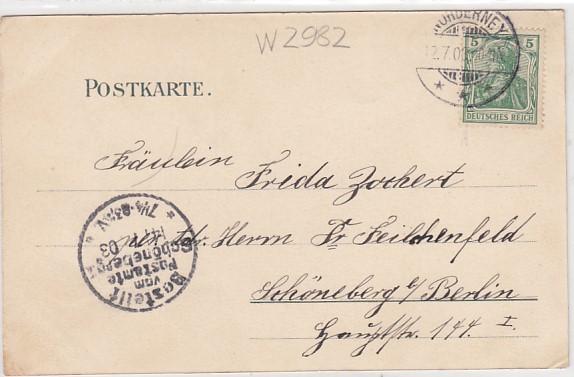 W2982
NORDERNEY
12.7.0
5 5
DEUTSCHES REICH
POSTKARTE.
Fräulein
Frida Zochert
per Adr. Herrn Fr Feilchenfeld
Schöneberg b/Berlin
Hauptstr. 144. I.
Bestellt
vom
Postamte
Schöneberg
03
7½-8¾ V.